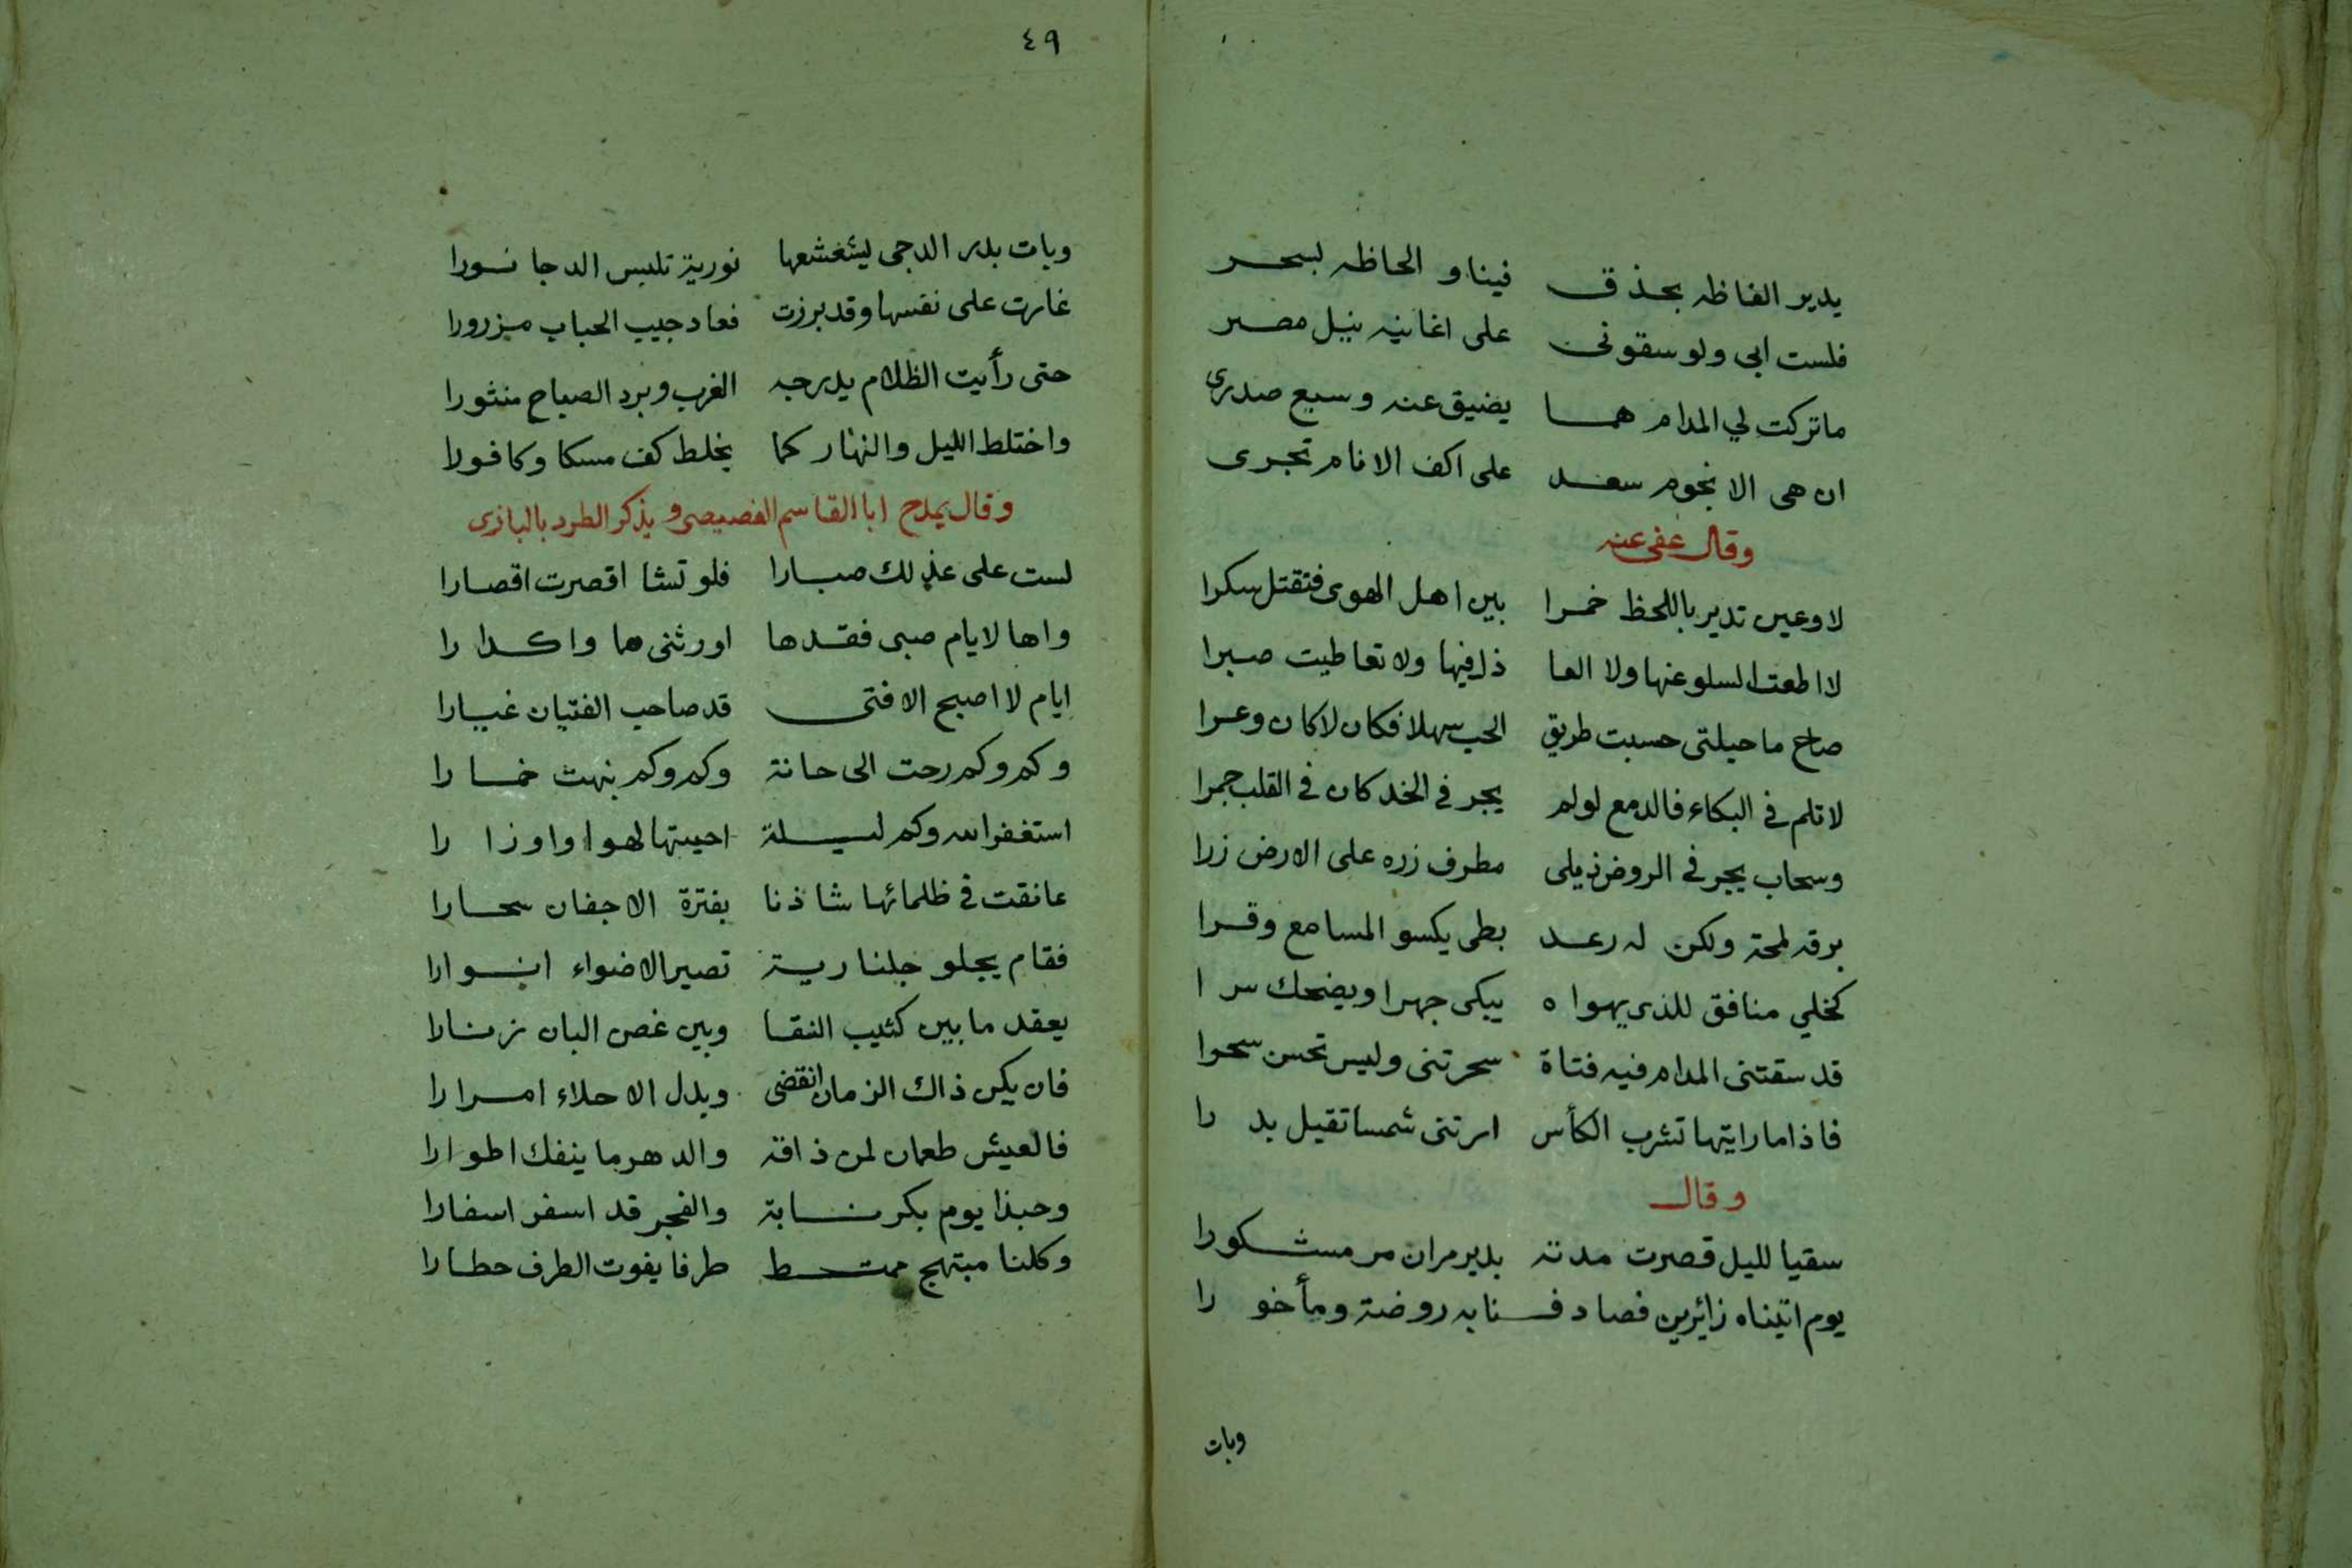 يدير الفاظه بحذق فينا و الحاظه بسحر
فلست ابى ولو سقونى على اغانيه بنيل مصر
ما تركت لي المدام هما يضيق عنه وسيع صدرى
ان هى الا نجوم سعد على اكف الانام تجرى
وقال عفى عنه
لا وعين تدير باللحظ خمرا بين اهل الهوى فتقتل سكرا
لا اطعت السلو عنها ولا العا ذل فيها ولا تعاطيت صبرا
صاح ما حيلتى حسبت طريق الحب سهلا فكان لا كان وعرا
لا تلم في البكاء فالدمع لولم يجر في الخد كان في القلب جمرا
وسحاب يجر في الروض ذيلى مطرف زره على الارض زرا
برقه لمحة ولكن له رعد بطى يكسو المسامع وقرا
كخلي منافق للذى يهواه يبكى جهرا ويضحك سرا
قد سقتنى المدام فيه فتاة سحرتنى وليس تحسن سحرا
فاذا ما رايتها تشرب الكأس ارتنى شمسا تقبل بدرا
وقال
سقيا لليل قصرت مدته بدير مران مر مشكورا
يوم اتيناه زائرين فصادفنا به روضة ومأخورا
وبات
٤٩
وبات بدر الدجى يشعشعها نورية تلبس الدجا نورا
غارت على نفسها وقد برزت فعاد جيب الحباب مزرورا
حتى رأيت الظلام يدرجه الغرب وبرد الصباح منثورا
واختلط الليل والنهار كما يخلط كف مسكا وكافورا
وقال يمدح ابا القاسم الفصيصى و يذكر الطرد بالبازى
لست على عذلك صبارا فلو تشا اقصرت اقصارا
واها لايام صبى فقدها اورثنى هما واكدارا
ايام لا اصبح الا فتى قد صاحب الفتيان عيارا
وكم وكم رحت الى حانة وكم وكم نبهت خمارا
استغفر الله وكم ليلة احييتها لهوا واوزارا
عانقت في ظلمائها شاذنا بفترة الاجفان سحارا
فقام يجلو جلنارية تصير الاضواء انوارا
يعقد ما بين كثيب النقا وبين غصن البان زنارا
فان يكن ذاك الزمان انقضى وبدل الاحلاء امرارا
فالعيش طعمان لمن ذاقه والدهر ما ينفك اطوارا
وحبذا يوم بكرنا به والفجر قد اسفر اسفارا
وكلنا مبتهج ممتط طرفا يفوت الطرف حطارا